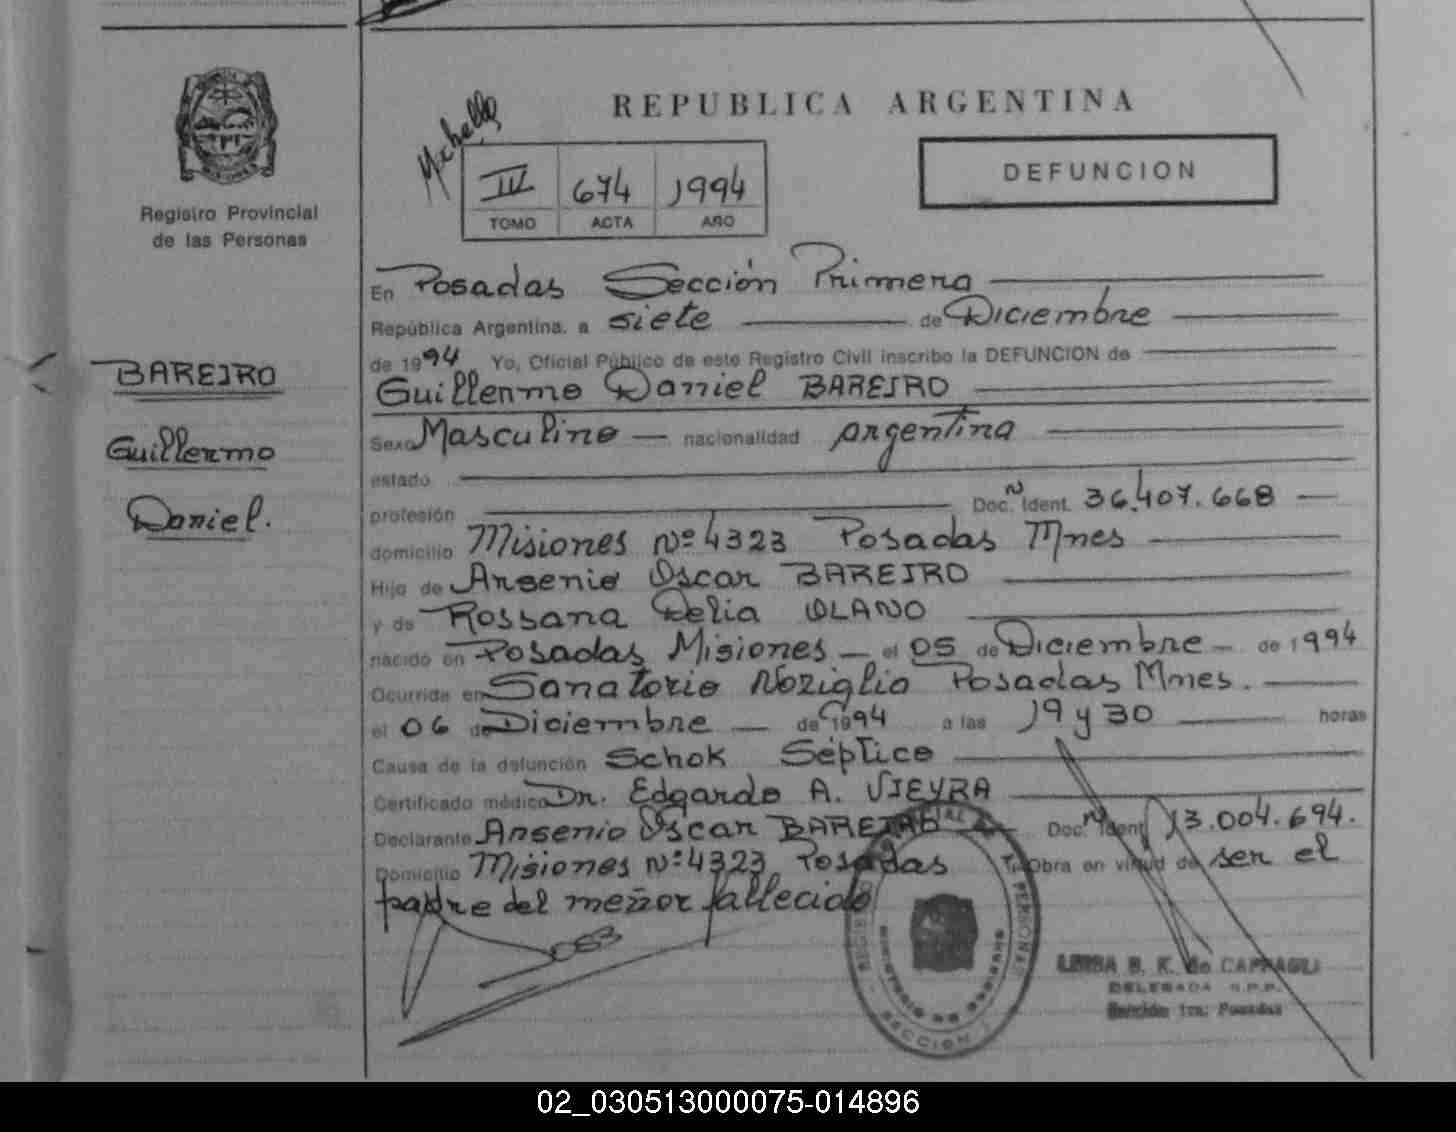 REPUBLICA ARGENTINA
III 674 1994
TOMO ACTA AÑO
DEFUNCION
Registro Provincial
de las Personas
BAREIRO
Guillermo
Daniel.
En Posadas Sección Primera
República Argentina, a siete de Diciembre
de 1994 Yo, Oficial Público de este Registro Civil inscribo la DEFUNCION de
Guillermo Daniel BAREIRO
Sexo Masculino nacionalidad argentina
estado
profesión Doc. Ident. 36.407.668
domicilio Misiones Nº 4323 Posadas Mnes
Hijo de Arsenio Oscar BAREIRO
y de Rossana Delia OLANO
nacido en Posadas Misiones el 05 de Diciembre de 1994
Ocurrida en Sanatorio Noziglia Posadas Mnes.
el 06 de Diciembre de 1994 a las 19 y 30 horas
Causa de la defunción Schok Séptico
Certificado médico Dr. Edgardo A. VIEYRA
Declarante Arsenio Oscar BAREIRO Doc. Ident 13.004.694.
Domicilio Misiones Nº 4323 Posadas Obra en virtud de ser el
padre del menor fallecido
DELEGADA R.P.P.
Sección 1ra. Posadas
SECCION
02_030513000075-014896